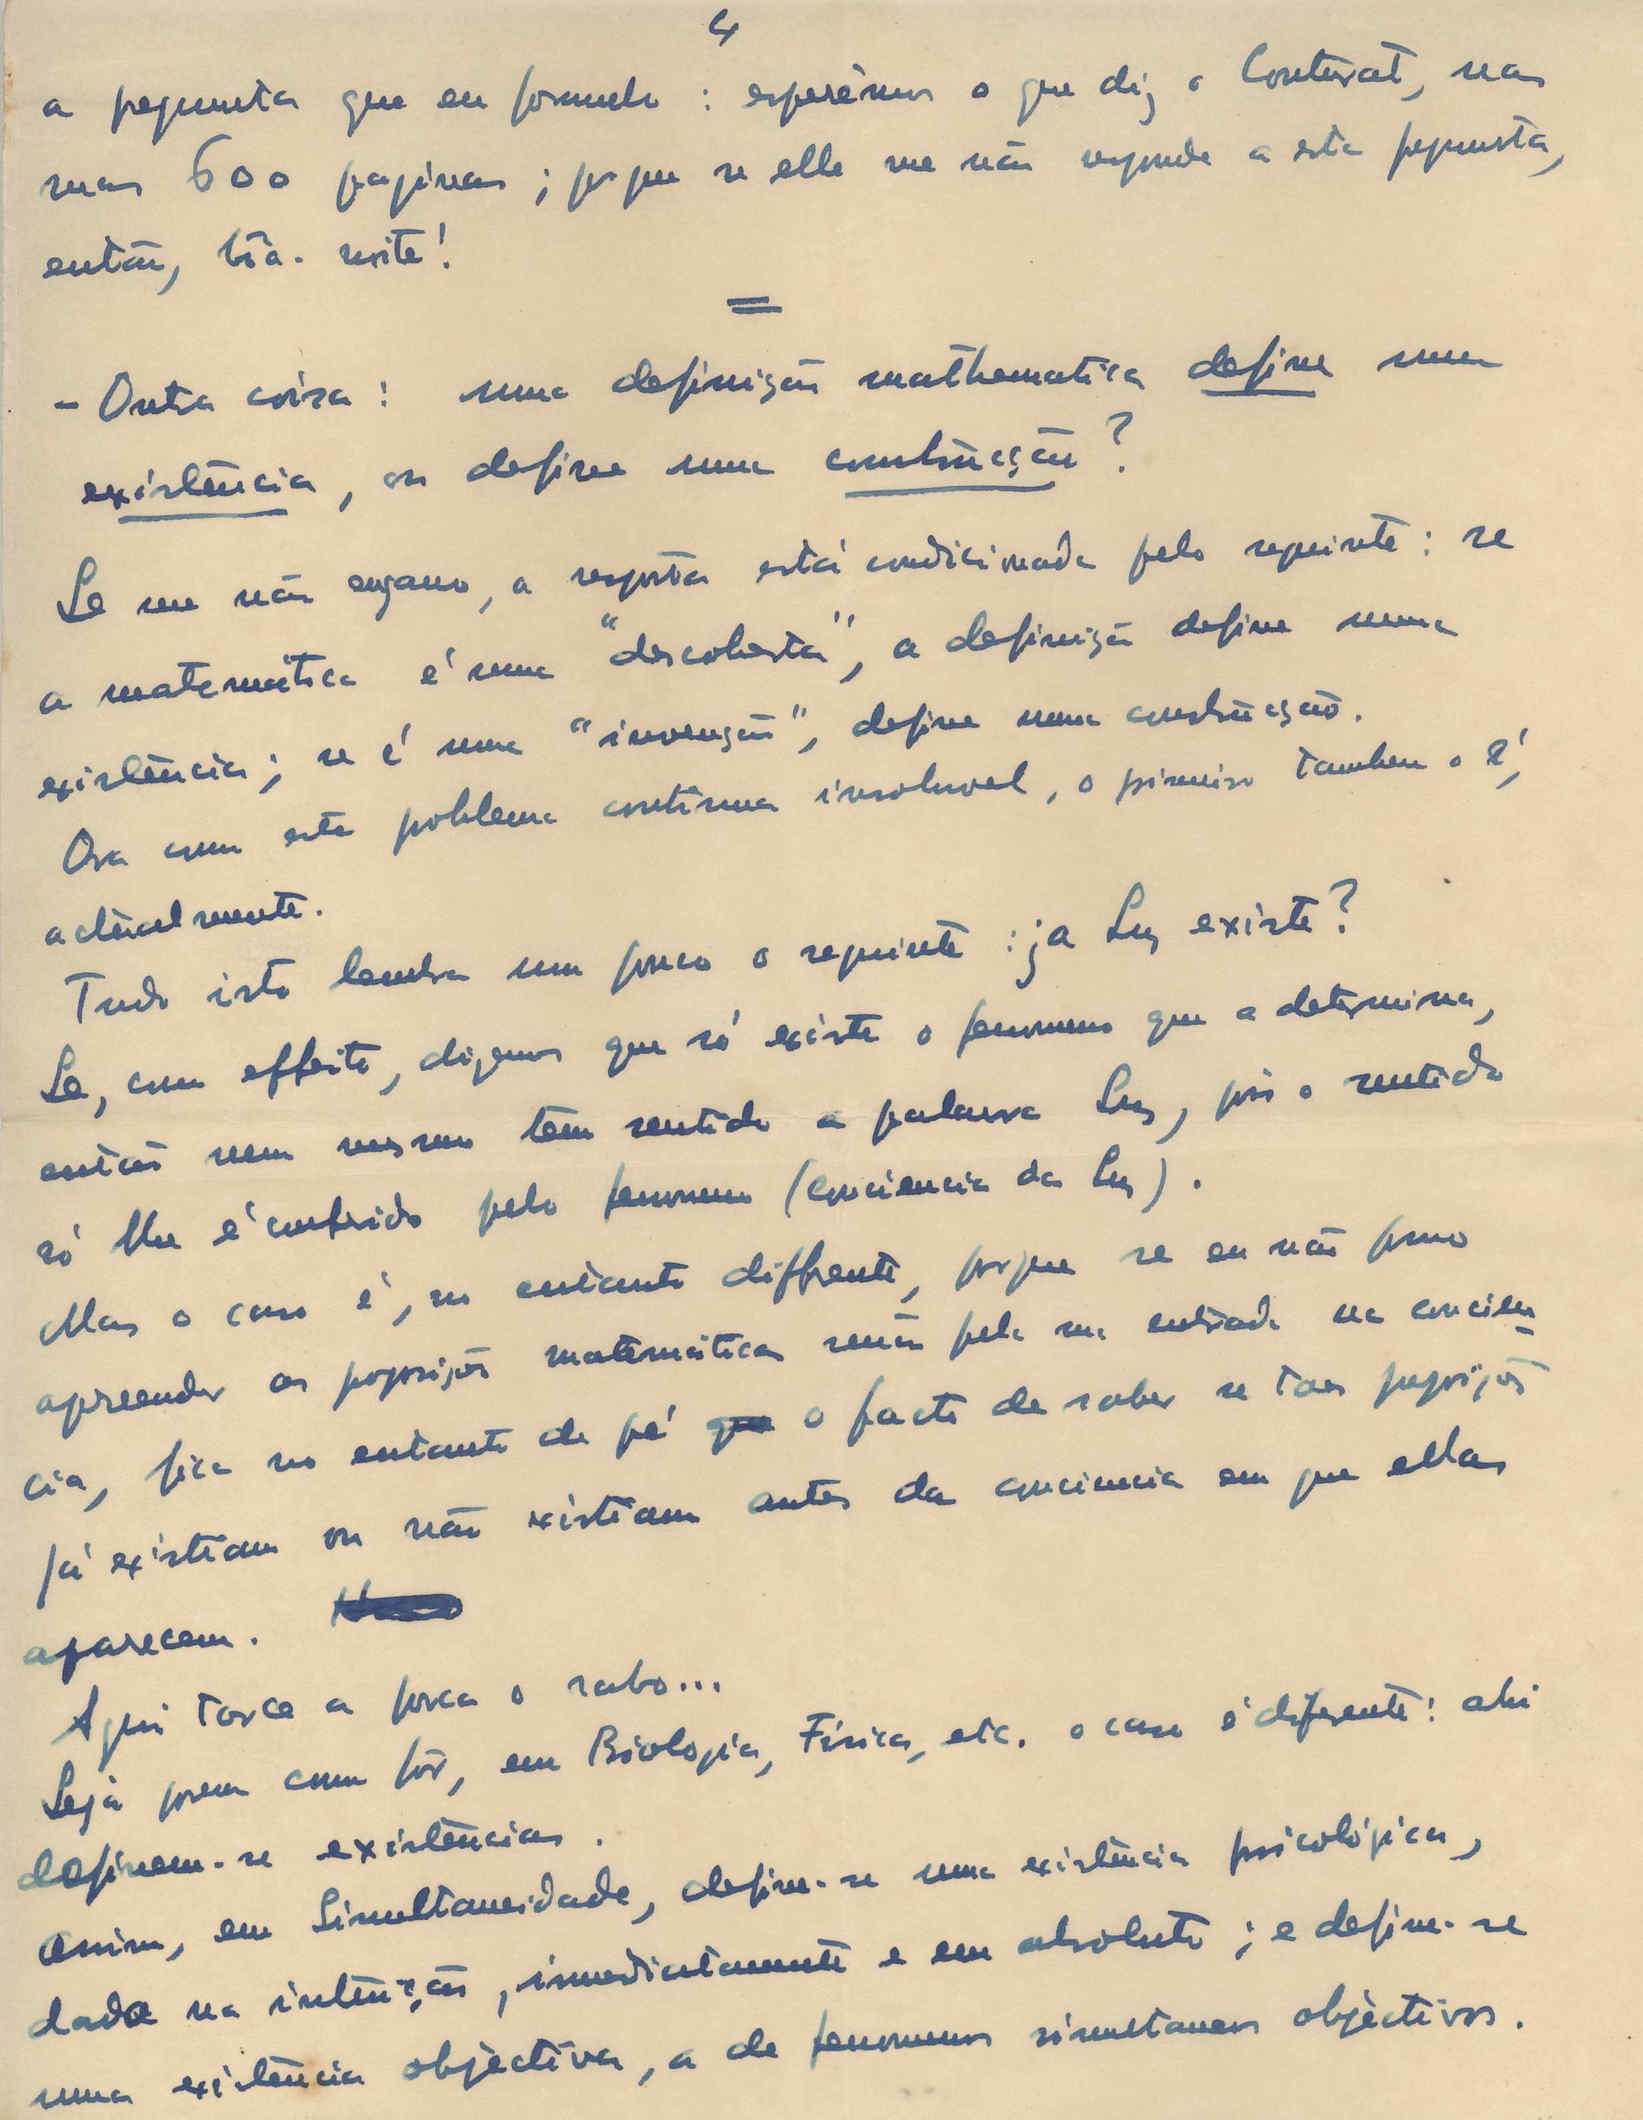 4
a pergunta que eu formulo : esperêmos o que diz o Couturat, nas
suas 600 paginas ; porque se elle me não responde a esta pergunta,
então, bôa-noite!
=
- Outra coisa : uma definição mathematica define uma
existência, ou define uma construcção?
Se me não engano, a resposta está condicionada pelo seguinte : se
a matemática é uma "descoberta", a definição define uma
existência; se é uma "invenção", define uma construcção.
Ora como este problema continua insoluvel, o primeiro tambem o é,
actualmente.
Tudo isto lembra um pouco o seguinte : ¿a Luz existe?
Se, com effeito, dizemos que só existe o fenomeno que a determina,
então nem mesmo tem sentido a palavra Luz, pois o sentido
só lhe é conferido pelo fenomeno (conciencia da Luz).
Mas o caso é, no entanto diffrente, porque se eu não posso
apreender as proposições matemáticas senão pela sua entrada na concien
cia, fica no entanto de pé que o facto de saber se taes proposições
já existiam ou não existiam antes da conciencia em que ellas
aparecem.
Aqui torce a porca o rabo...
Seja porem como fôr, em Biologia, Física, etc. o caso é diferente : ahi
definem-se existências.
Assim, em Simultaneidade, define-se uma existência psicológica,
dada na intuição, imediatamente e em absoluto ; e define-se
uma existência objectiva, a de fenomenos simultaneos objectivos.